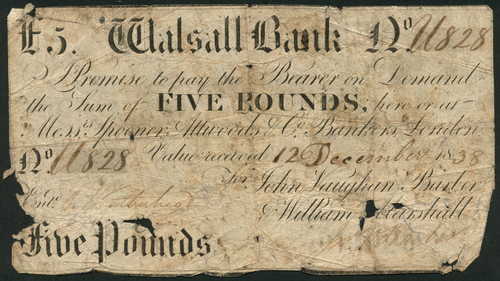 £5. Walsall Bank No. 11828
I Promise to pay the Bearer on Demand
the Sum of FIVE POUNDS, here or at
Messrs. Spooner, Attwoods & Co. Bankers, London
No. 11828 Value received 12 December 1838
For John Vaughan Barber
Entd. & William Marshall
Five Pounds